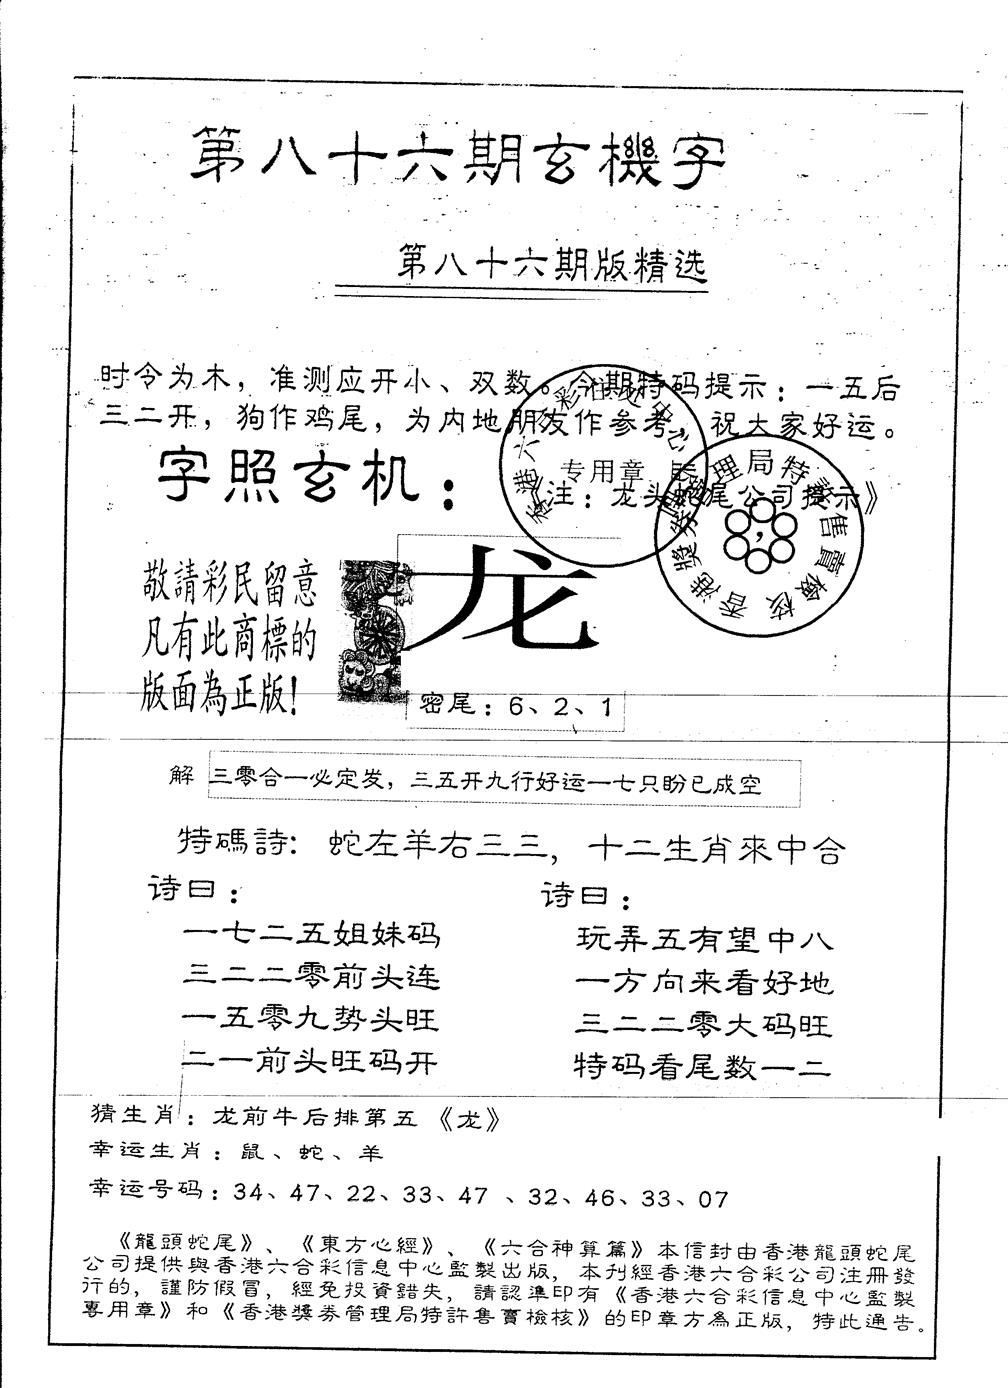 第八十六期玄機字
第八十六期版精选
时令为木，准测应开小、双数。今期特码提示：一五后
三二开，狗作鸡尾，为内地朋友作参考，祝大家好运。
字照玄机：
《注：龙头蛇尾公司提示》
专用章
香港獎券管理局特許售賣檢核
敬請彩民留意
凡有此商標的
版面為正版！
龙
密尾：6、2、1
解 三零合一必定发，三五开九行好运一七只盼已成空
特碼詩：蛇左羊右三三，十二生肖來中合
诗曰：
一七二五姐妹码
三二二零前头连
一五零九势头旺
二一前头旺码开
诗曰：
玩弄五有望中八
一方向来看好地
三二二零大码旺
特码看尾数一二
猜生肖：龙前牛后排第五《龙》
幸运生肖：鼠、蛇、羊
幸运号码：34、47、22、33、47 、32、46、33、07
《龍頭蛇尾》、《東方心經》、《六合神算篇》本信封由香港龍頭蛇尾
公司提供與香港六合彩信息中心監製出版，本刊經香港六合彩公司注冊發
行的，謹防假冒，經免投資錯失，請認準印有《香港六合彩信息中心監製
專用章》和《香港獎券管理局特許售賣檢核》的印章方為正版，特此通告。